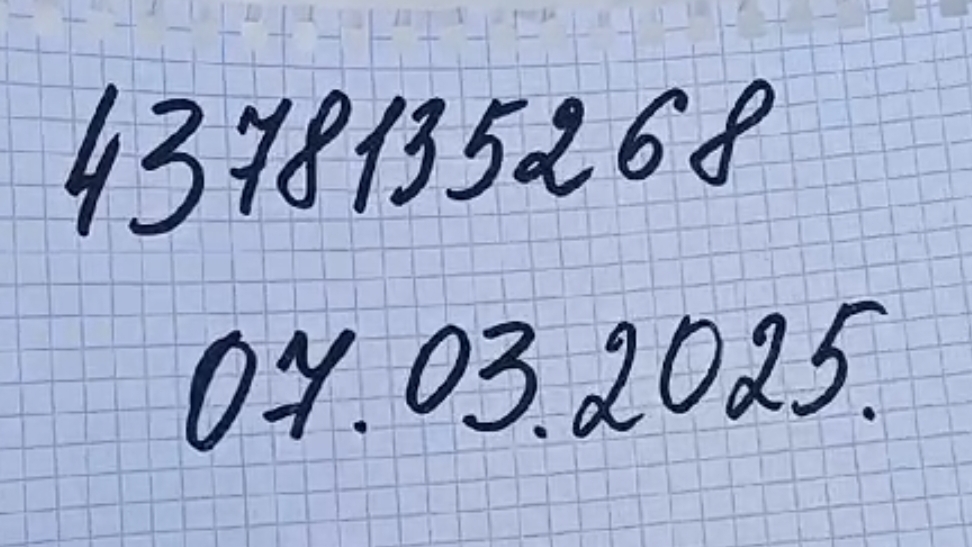 4378135268
07.03.2025.